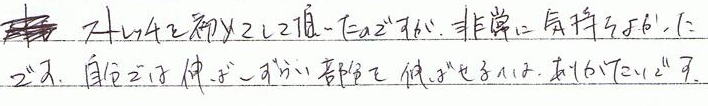 ストレッチを初めてして頂いたのですが、非常に気持ちよかった
です。自分では伸ばしずらい部分を伸ばせるのは、ありがたいです。